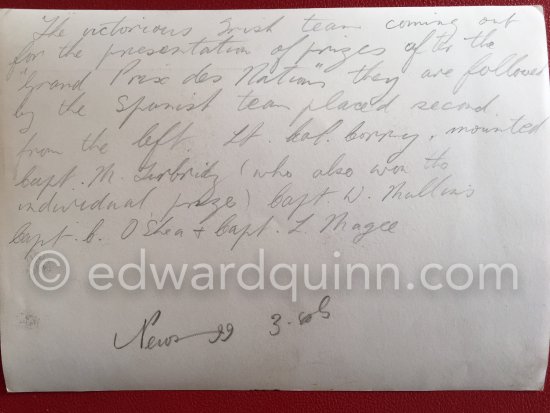 The victorious Irish team coming out
for the presentation of prizes after the
"Grand Prix des Nations" they are followed
by the Spanish team placed second.
from the left. Lt. Col. Corry, mounted
Capt. M. Tubridy (who also won the
individual prize) Capt W. Mullins
Capt. C. O'Shea + Capt. L. Magee
© edwardquinn.com
News 99 3.